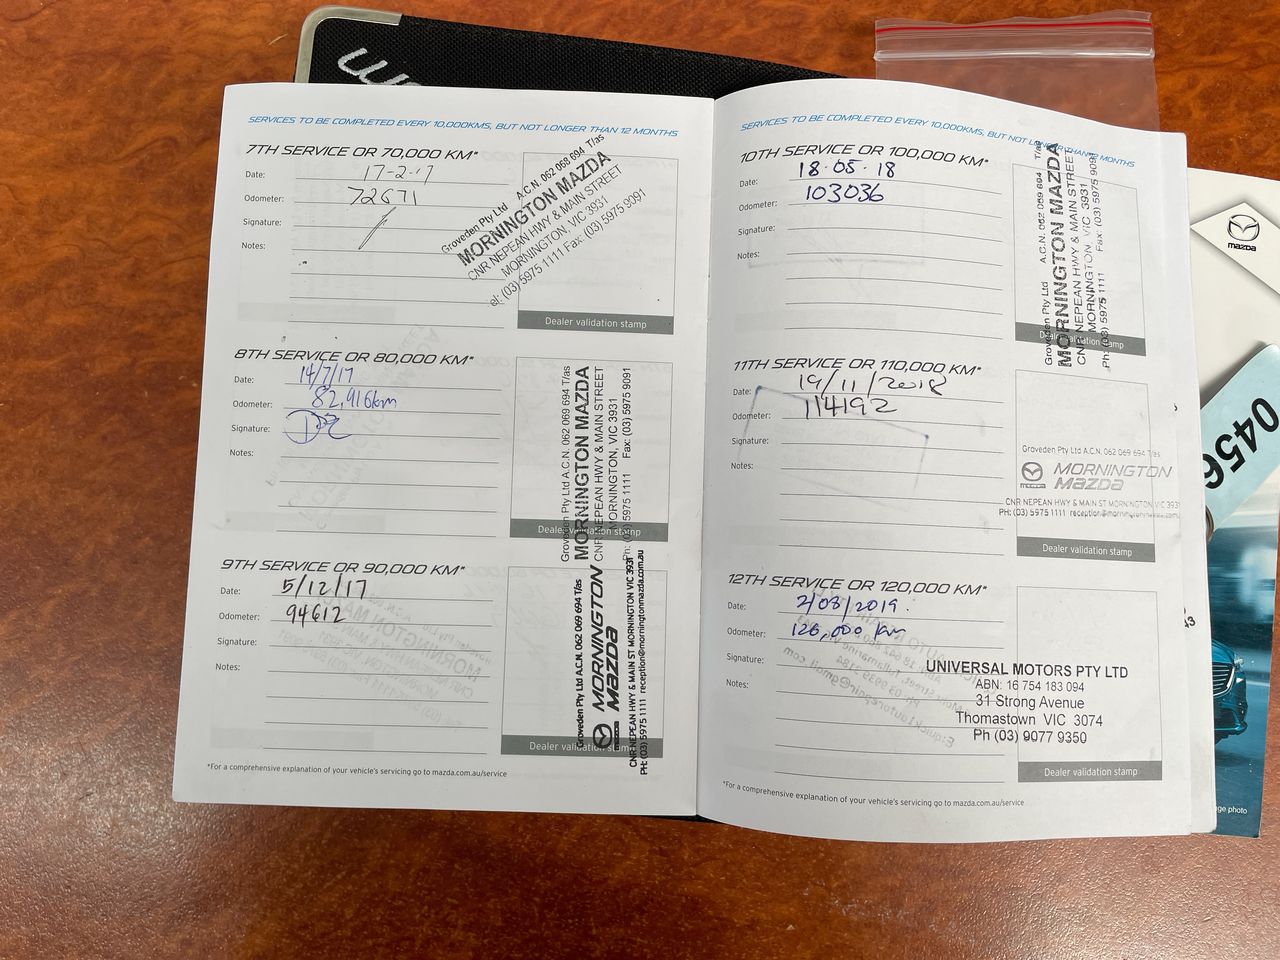 SERVICES TO BE COMPLETED EVERY 10,000KMS, BUT NOT LONGER THAN 12 MONTHS
7TH SERVICE OR 70,000 KM*
Date: 17-2-17
Odometer: 72671
Signature:
Notes:
Groveden Pty Ltd A.C.N. 062 069 694 T/as
MORNINGTON MAZDA
CNR NEPEAN HWY & MAIN STREET
MORNINGTON, VIC 3931
el: (03) 5975 1111 Fax: (03) 5975 9091
Dealer validation stamp
8TH SERVICE OR 80,000 KM*
Date: 14/7/17
Odometer: 82,916km
Signature:
Notes:
Groveden Pty Ltd A.C.N. 062 069 694 T/as
MORNINGTON MAZDA
CNR NEPEAN HWY & MAIN STREET
MORNINGTON, VIC 3931
Ph: (03) 5975 1111 Fax: (03) 5975 9091
Dealer validation stamp
9TH SERVICE OR 90,000 KM*
Date: 5/12/17
Odometer: 94612
Signature:
Notes:
Groveden Pty Ltd A.C.N. 062 069 694 T/as
MORNINGTON
mazda
CNR NEPEAN HWY & MAIN ST MORNINGTON VIC 3931
PH: (03) 5975 1111 reception@morningtonmazda.com.au
Dealer validation stamp
*For a comprehensive explanation of your vehicle's servicing go to mazda.com.au/service
SERVICES TO BE COMPLETED EVERY 10,000KMS, BUT NOT LONGER THAN 12 MONTHS
10TH SERVICE OR 100,000 KM*
Date: 18·05·18
Odometer: 103036
Signature:
Notes:
Groveden Pty Ltd A.C.N. 062 069 694 T/as
MORNINGTON MAZDA
CNR NEPEAN HWY & MAIN STREET
MORNINGTON, VIC 3931
Ph: (03) 5975 1111 Fax: (03) 5975 9091
Dealer validation stamp
11TH SERVICE OR 110,000 KM*
Date: 19/11/2018
Odometer: 114192
Signature:
Notes:
Groveden Pty Ltd A.C.N. 062 069 694 T/as
MORNINGTON
mazda
CNR NEPEAN HWY & MAIN ST MORNINGTON VIC 3931
PH: (03) 5975 1111 reception@morningtonmazda.com
Dealer validation stamp
12TH SERVICE OR 120,000 KM*
Date: 2/08/2019.
Odometer: 126,000 km
Signature:
Notes:
UNIVERSAL MOTORS PTY LTD
ABN: 16 754 183 094
31 Strong Avenue
Thomastown VIC 3074
Ph (03) 9077 9350
Dealer validation stamp
*For a comprehensive explanation of your vehicle's servicing go to mazda.com.au/service
mazda
0456
ge photo